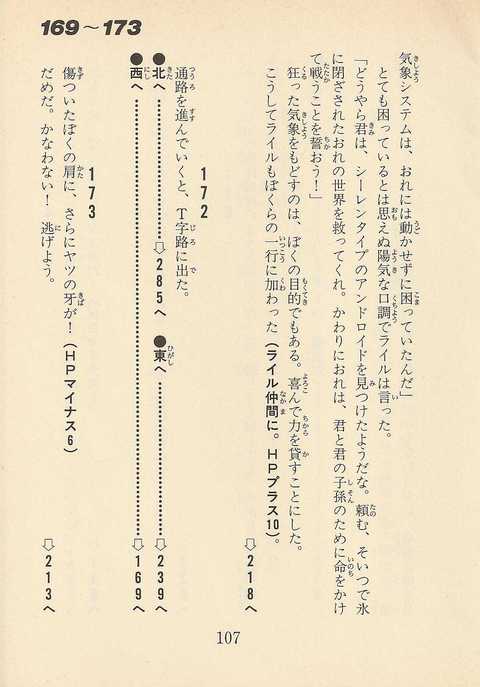 169～173
気象システムは、おれには動かせずに困っていたんだ」
とても困っているとは思えぬ陽気な口調でライルは言った。
「どうやら君は、シーレンタイプのアンドロイドを見つけたようだな。頼む、そいつで氷
に閉ざされたおれの世界を救ってくれ。かわりにおれは、君と君の子孫のために命をかけ
て戦うことを誓おう！」
狂った気象をもどすのは、ぼくの目的でもある。喜んで力を貸すことにした。
こうしてライルもぼくらの一行に加わった（ライル仲間に。ＨＰプラス10）。
⇨218へ
172
通路を進んでいくと、Ｔ字路に出た。
●北へ……………⇨285へ ●東へ……………⇨239へ
●西へ……………⇨169へ
173
傷ついたぼくの肩に、さらにヤツの牙が！（ＨＰマイナス6）
だめだ。かなわない！ 逃げよう。
⇨213へ
107